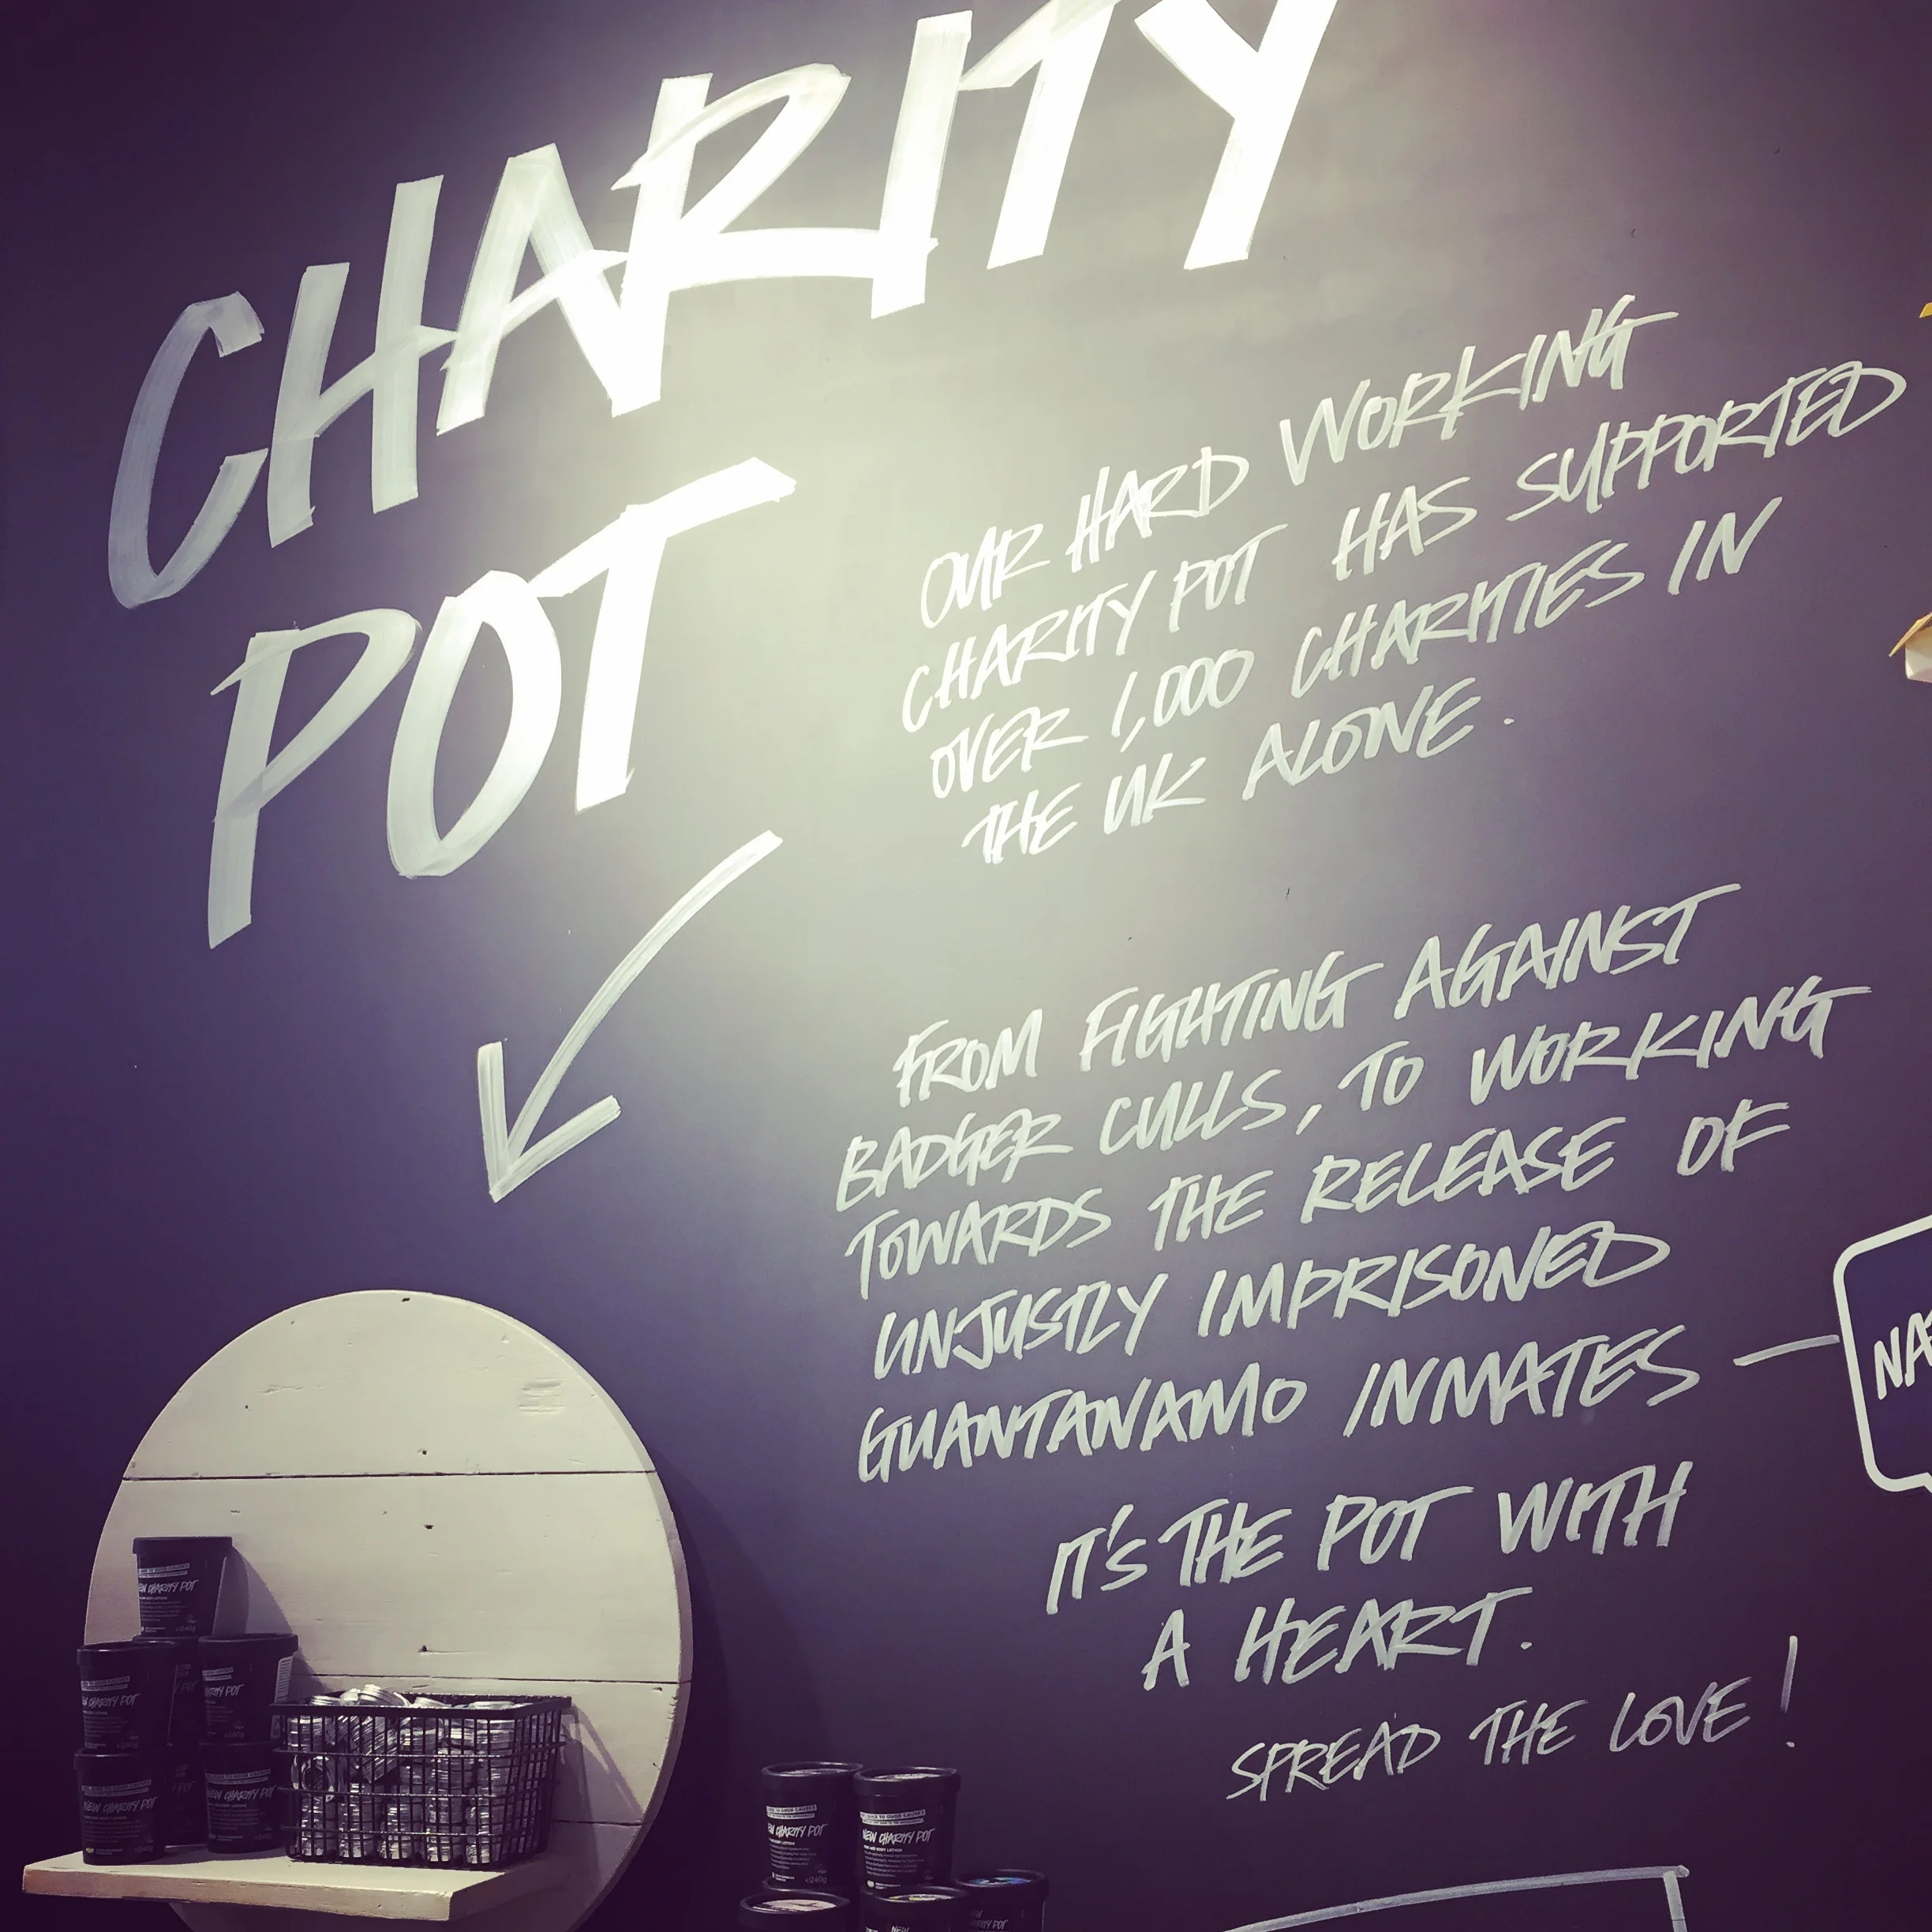 CHARITY
POT
OUR HARD WORKING
CHARITY POT HAS SUPPORTED
OVER 1,000 CHARITIES IN
THE UK ALONE.
FROM FIGHTING AGAINST
BADGER CULLS, TO WORKING
TOWARDS THE RELEASE OF
UNJUSTLY IMPRISONED
GUANTANAMO INMATES —
IT'S THE POT WITH
A HEART.
SPREAD THE LOVE!
NEW CHARITY POT
NEW CHARITY POT
CHARITY POT
NEW CHARITY POT
NEW CHARITY POT
NEW CHARITY POT
NEW CHARITY POT
240g